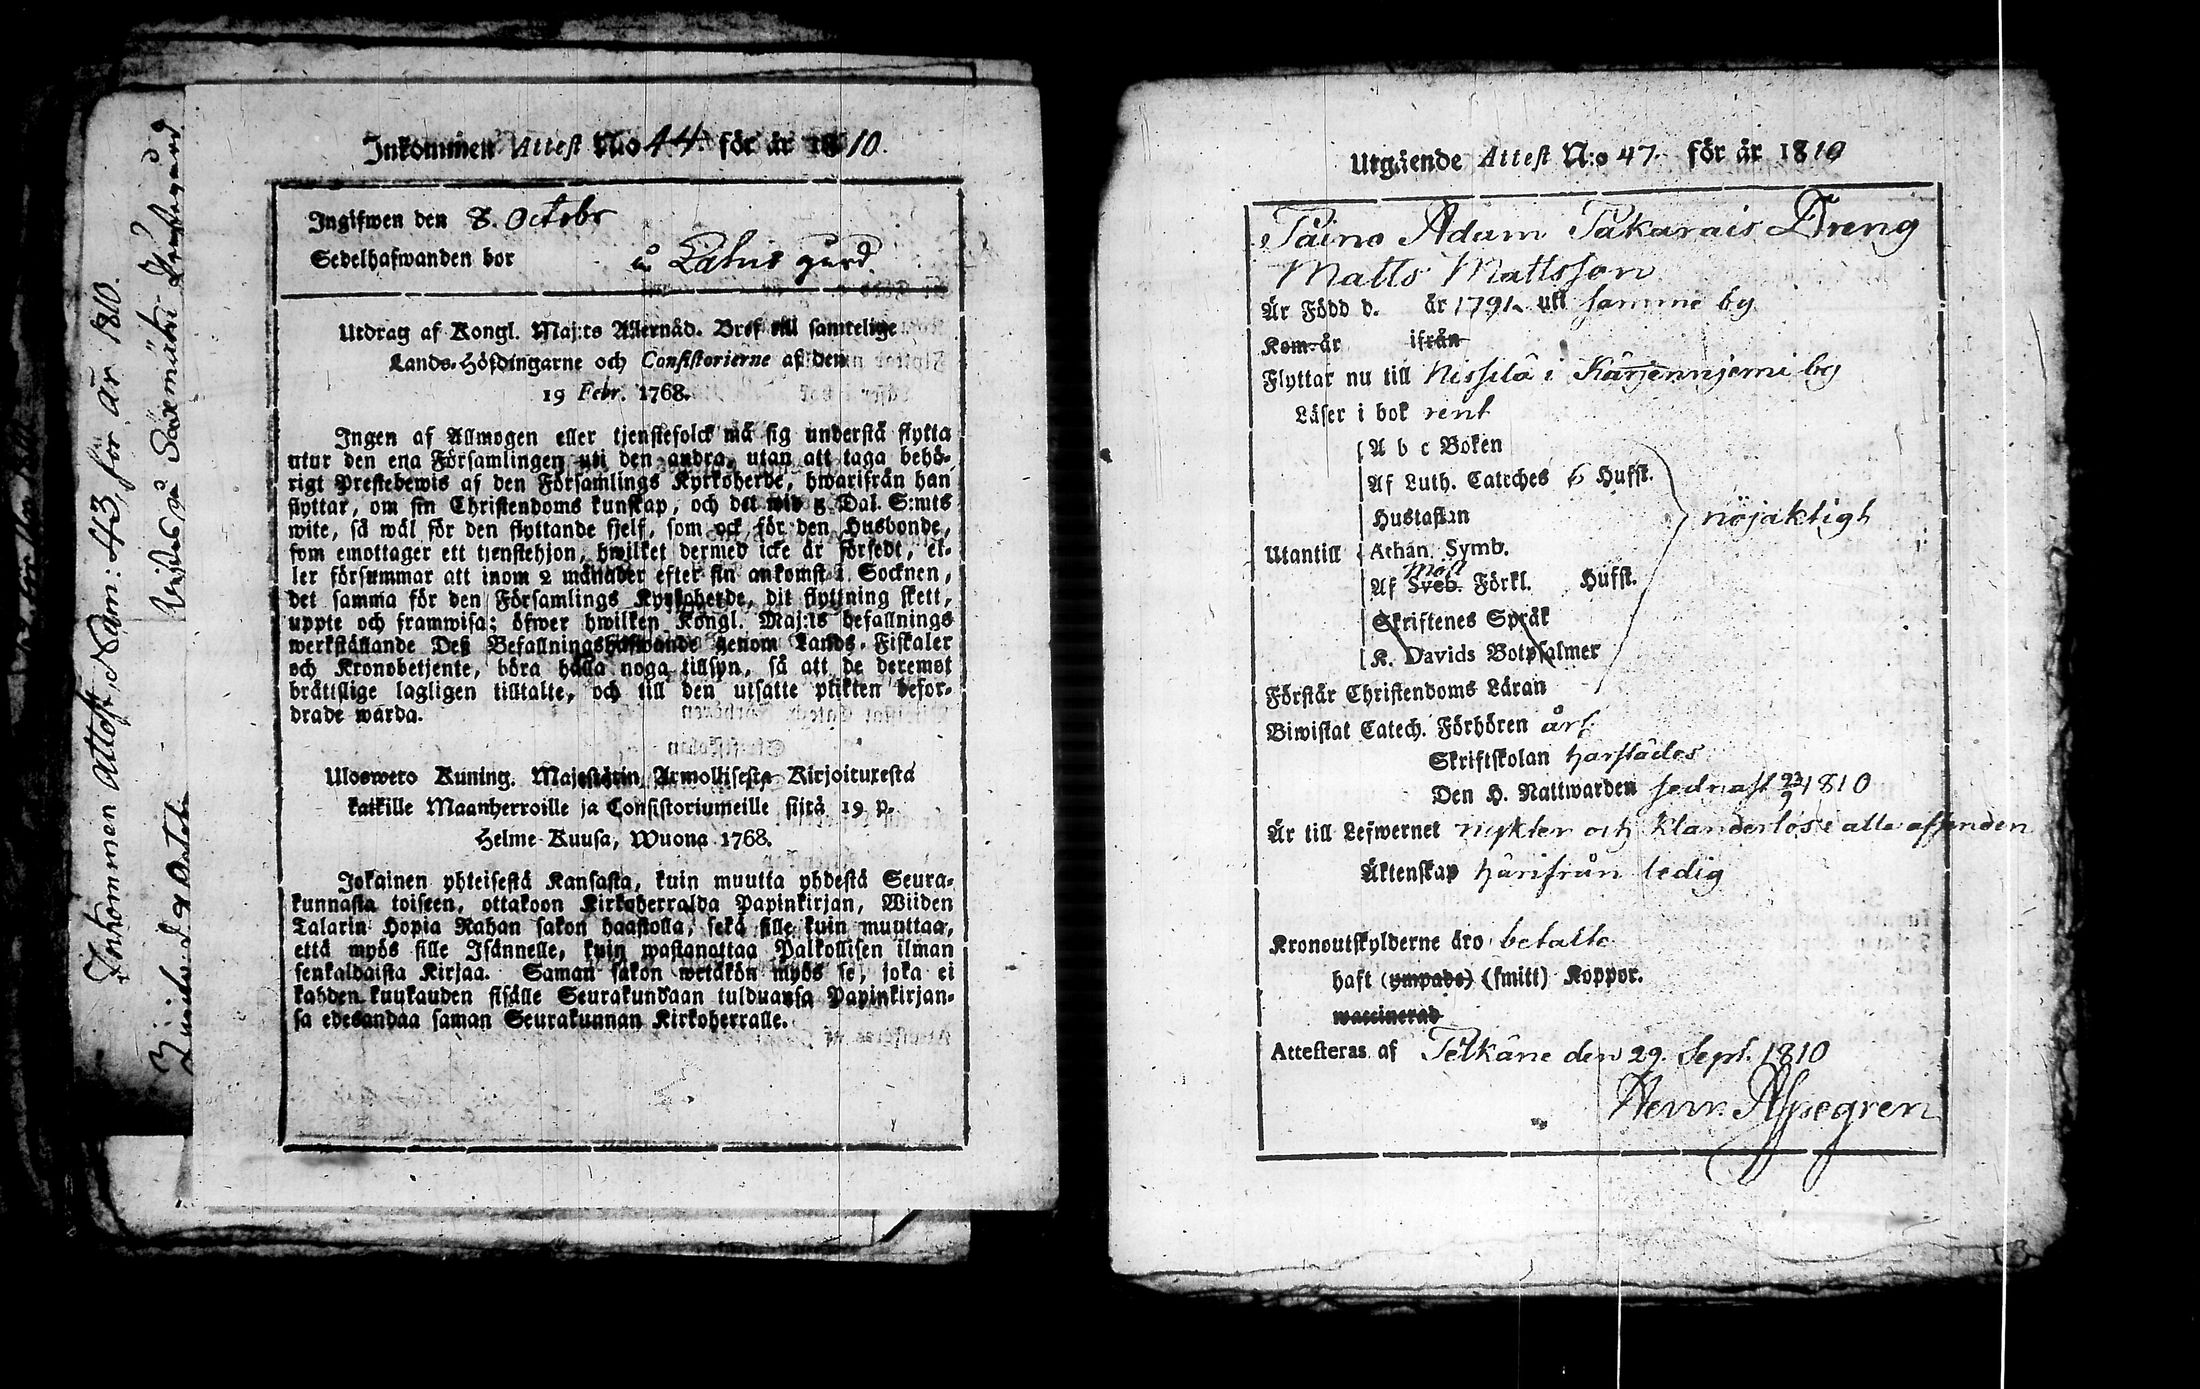 Inkommen Attest Num: 43, för år 1810.
Inkommen Attest No 44 för år 1810.
Ingifwen den 8. Octobr
Sedelhafwanden bor å Latus gård.
Utdrag af Kongl. Maj:ts Allernåd. Bref till samtelige
Lands-Höfdingarne och Consistorierne af den
19 Febr. 1768.
Ingen af Allmogen eller tjenstefolck må sig understå flytta
utur den ena Församlingen uti den andra, utan att taga behö-
rigt Prestebewis af den Församlings Kyrkoherde, hwarifrån han
flyttar, om sin Christendoms kunskap, och det wid 5. Dal. S:mts
wite, så wäl för den flyttande sjelf, som ock för den Husbonde,
som emottager ett tjenstehjon, hwilket dermed icke är försedt, el-
ler försummar att inom 2 månader efter sin ankomst i Socknen,
det samma för den Församlings Kyrkoherde, dit flyttning skett,
uppte och framwisa; öfwer hwilken Kongl. Maj:ts befallnings
werkställande Deß Befallningshafwande genom Lands-Fiskaler
och Kronobetjente, böra hålla noga tillsyn, så att de deremot
bråttslige lagligen tilltalte, och till den utsatte plikten befor-
drade warda.
Ulosweto Kuning. Majestätin Armollisesta Kirjoituxesta
kaikille Maanherroille ja Consistoriumeille siitä 19 p.
Helme-Kuusa, Wuona 1768.
Jokainen yhteisestä Kansasta, kuin muutta yhdestä Seura-
kunnasta toiseen, ottakoon Kirkoherralda Papinkirjan, Wiiden
Talarin Hopia Rahan sakon haastolla, sekä sille kuin muuttaa,
että myös sille Isännelle, kuin wastanottaa Palkollisen ilman
senkaldaista Kirjaa. Saman sakon wetäkön myös se, joka ei
kahden kuukauden sisälle Seurakundaan tulduansa Papinkirjan-
sa edesandaa saman Seurakunnan Kirkoherralle.
Utgående Attest N:o 47. för år 1810
Paino Adam Pakarais Dreng
Matts Mattsson
Är Född d. år 1791. uti samme by
Kom år ifrån
Flyttar nu till Nissilä i Kärjenniemi by
Läser i bok rent
A b c Boken
Af Luth. Catches 6 Hufst.
Hustaflan
Utantill Athan. Symb. nöjaktigt
Af Sveb. Förkl. Hufst.
Skriftenes Språk
K. Davids Botpsalmer
Förstår Christendoms Läran
Biwistat Catech. Förhören årl.
Skriftskolan härstädes
Den H. Nattwarden sednast 23/9 1810
Är till Lefwernet nykter och klanderlös i alla afseenden
Äktenskap härifrån ledig
Kronoutskylderne äro betalte
haft (ympade) (smitt) Koppor.
waccinerad
Attesteras af Pelkäne den 29. Sept. 1810
Henr. Aspegren